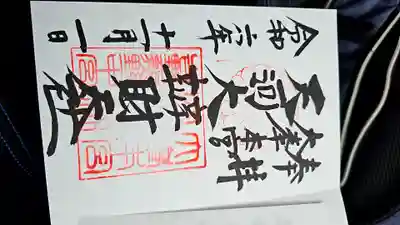 奉拝
大峯本宮
天河大
辨財天
令和六年
十一月一日